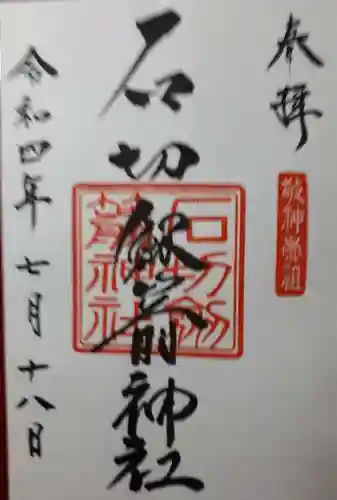 奉拝
敬神崇祖
石切劔箭神社
石切劔箭神社
令和四年七月十八日